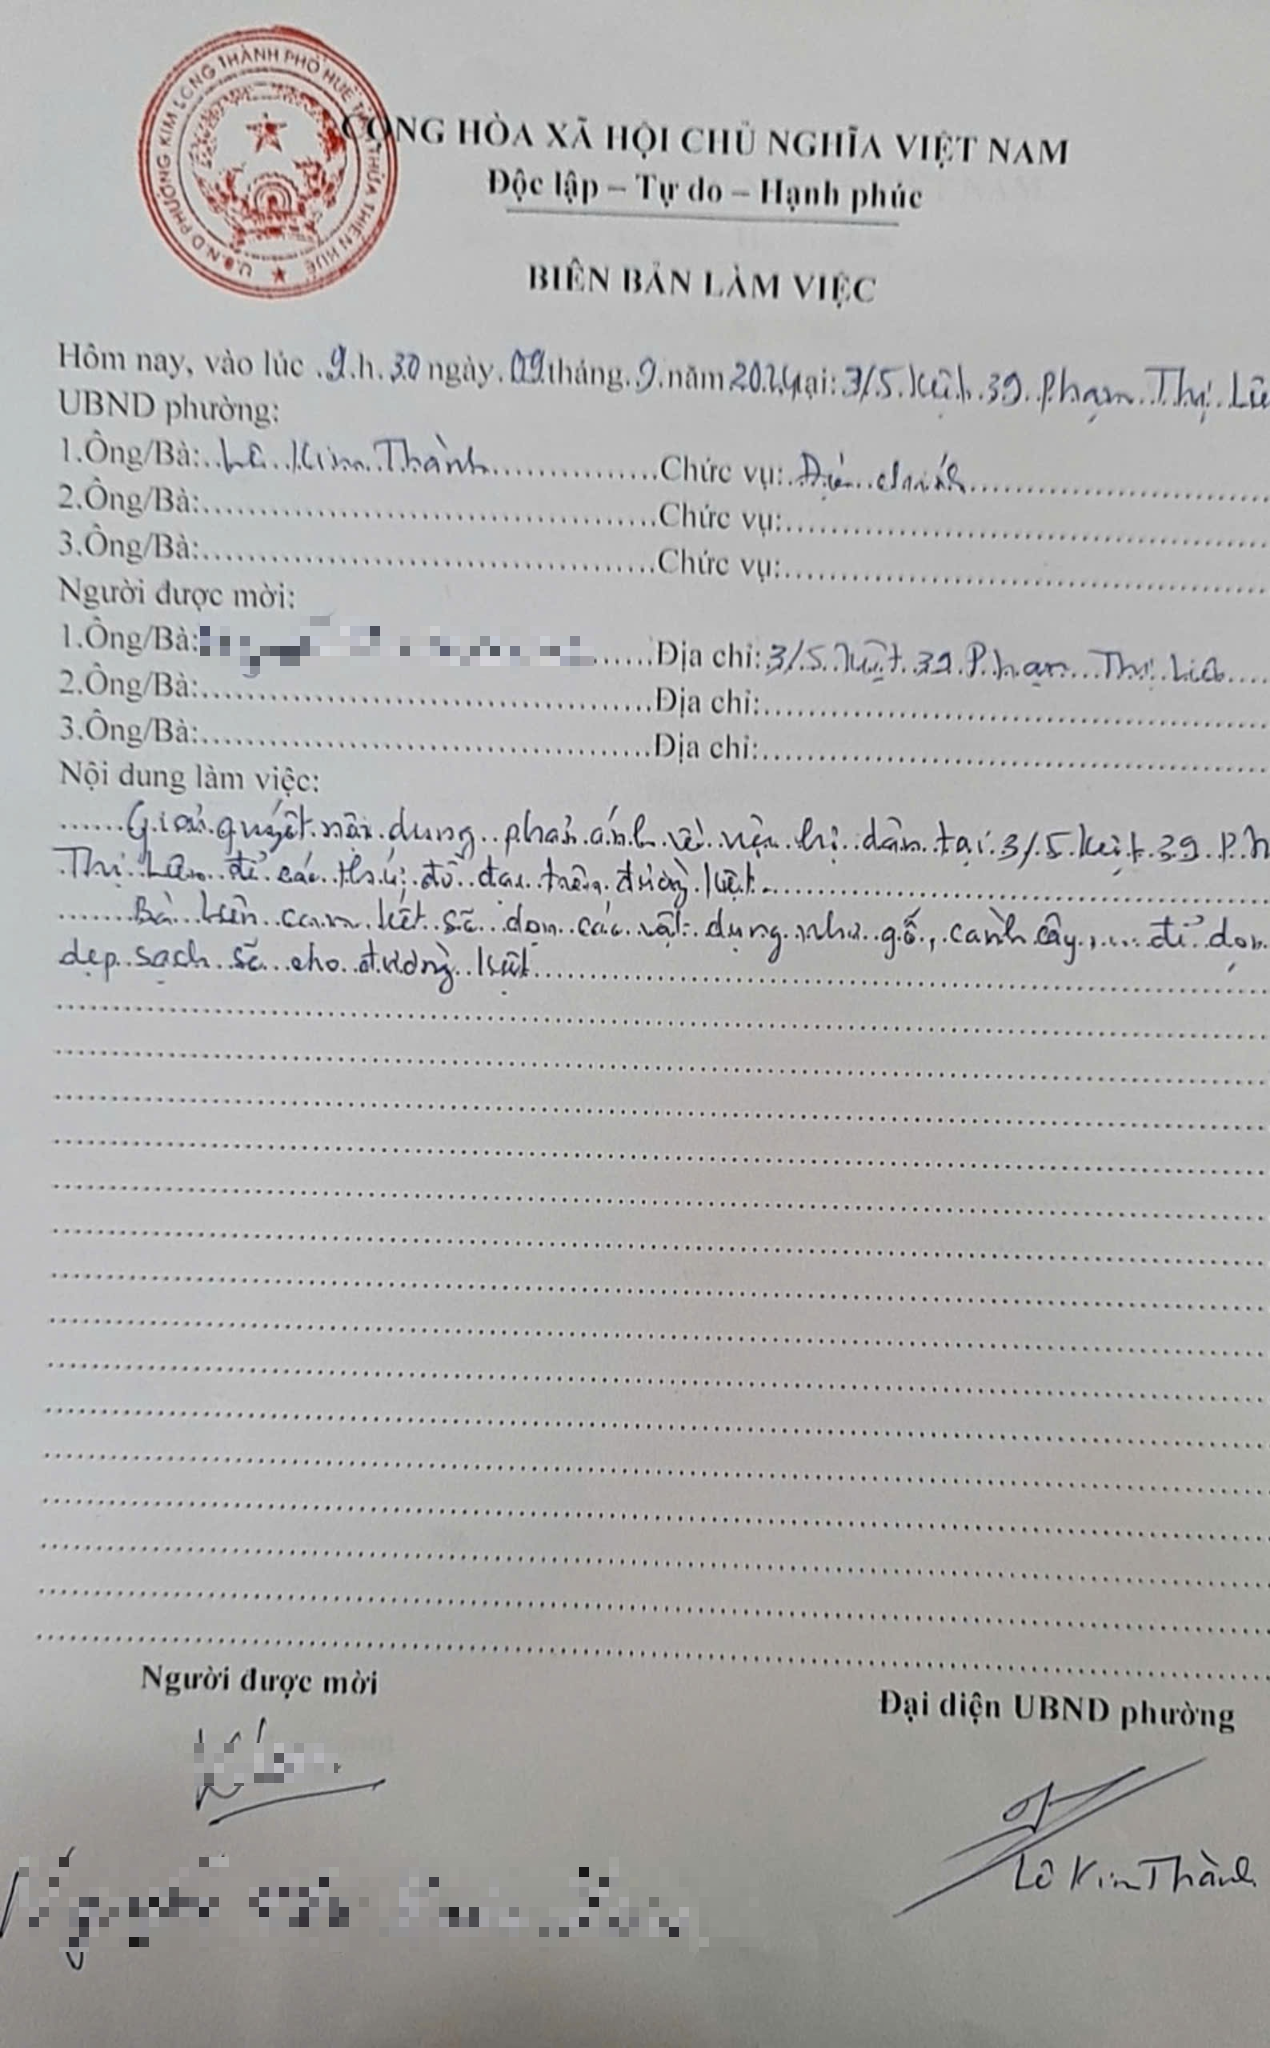 U.B.N.D PHƯỜNG KIM LONG THÀNH PHỐ HUẾ T. THỪA THIÊN HUẾ
CỘNG HÒA XÃ HỘI CHỦ NGHĨA VIỆT NAM
Độc lập – Tự do – Hạnh phúc
BIÊN BẢN LÀM VIỆC
Hôm nay, vào lúc 9 h 30 ngày 09 tháng 9 năm 2024 tại: 3/5 Kiệt 39 Phạm Thị Liê
UBND phường:
1.Ông/Bà: Lê Kim Thành Chức vụ: Địa chính
2.Ông/Bà: Chức vụ:
3.Ông/Bà: Chức vụ:
Người được mời:
1.Ông/Bà: Địa chỉ: 3/5 Kiệt 39 Phạm Thị Liên
2.Ông/Bà: Địa chỉ:
3.Ông/Bà: Địa chỉ:
Nội dung làm việc:
Giải quyết nội dung phản ánh về dân tại 3/5 Kiệt 39 Ph
Thị Liên để các thứ đồ đạc trên đường kiệt.
Bà cam kết sẽ dọn các vật dụng như gỗ, cành cây,... để dọn
dẹp sạch sẽ cho đường kiệt
Người được mời
Đại diện UBND phường
Lê Kim Thành